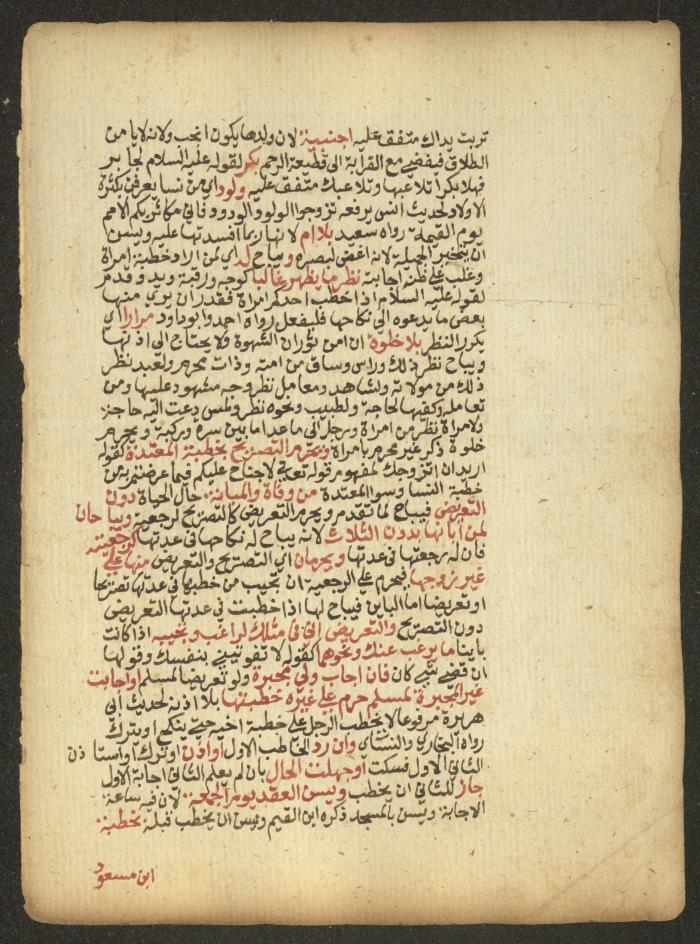 تربت يداك متفق عليه اجنبية لان ولدها يكون انجب ولانه لا يامن
الطلاق فيفضي مع القرابة الى قطيعة الرحم بكر لقوله عليه السلام لجابر
فهلا بكرا تلاعبها وتلاعبك متفق عليه ولود اي من نسا يعرفن بكثرة
الاولاد لحديث انس يرفعه تزوجوا الولود الودود فاني مكاثر بكم الامم
يوم القيمة رواه سعيد بلا ام لانها ربما افسدتها عليه ويسن
ان يتخير الجميلة لانه اغض لبصره ويباح له اي لمن اراد خطبة امراة
وغلب على ظنه اجابته نظر ما يظهر غالبا كوجه ورقبة ويد وقدم
لقوله عليه السلام اذا خطب احدكم امراة فقدر ان يرى منها
بعض ما يدعوه الى نكاحها فليفعل رواه احمد وابو داود مرارا اي
يكرر النظر بلا خلوة ان امن ثوران الشهوة ولا يحتاج الى اذنها
ويباح نظر ذلك وراس وساق من امته وذات محرم ولعبد نظر
ذلك من مولاته ولشاهد ومعامل نظر وجه مشهود عليها ومن
تعامله وكفيها لحاجة ولطبيب ونحوه نظر ولمس دعت اليه حاجة
ولامراة نظر من امراة ورجل الى ما عدا ما بين سرة وركبة ويحرم
خلوة ذكر غير محرم بامراة ويحرم التصريح بخطبة المعتدة كقوله
اريد ان اتزوجك لمفهوم قوله تعالى لا جناح عليكم فيما عرضتم به من
خطبة النسا وسوا المعتدة من وفاة والمبانة حال الحياة دون
التعريض فيباح لما تقدم ويحرم التعريض كالتصريح لرجعية ويباحان
لمن ابانها بدون الثلاث لانه يباح له نكاحها في عدتها كرجعيته
فان له رجعتها في عدتها ويحرمان اي التصريح والتعريض منها على
غير زوجها فيحرم على الرجعية ان تجيب من خطبها في عدتها تصريحا
او تعريضا اما الباين فيباح لها اذا خطبت في عدتها التعريض
دون التصريح والتعريض اني في مثلك لراغب وتجيبه اذا كانت
باينا ما يرغب عنك ونحوهما كقوله لا تفوتيني بنفسك وقولها
ان قضي شي كان فان اجاب ولي مجبرة ولو تعريضا لمسلم او اجابت
غير المجبرة لمسلم حرم على غيره خطبتها بلا اذنه لحديث ابي
هريرة مرفوعا لا يخطب الرجل على خطبة اخيه حتى ينكح او يترك
رواه البخاري والنساي وان رد الخاطب الاول او اذن او ترك او استاذن
الثاني الاول فسكت او جهلت الحال بان لم يعلم الثاني اجابة الاول
جاز للثاني ان يخطب ويسن العقد يوم الجمعة لان فيه ساعة
الاجابة ويسن بالمسجد ذكره ابن القيم ويسن ان يخطب قبله بخطبة
ابن مسعود